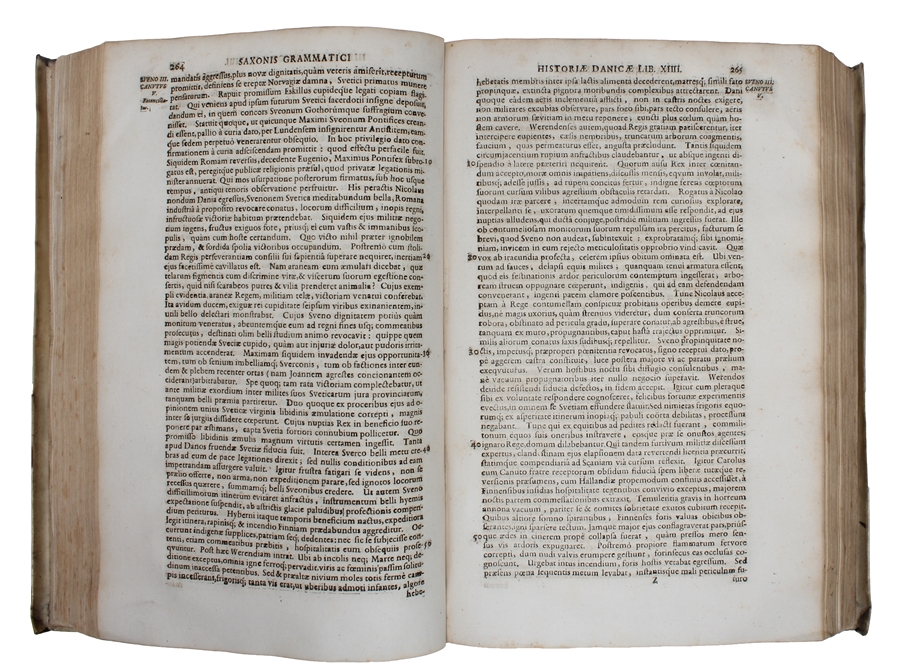 264 SAXONIS GRAMMATICI
SVENO III.
CANVTVS
V.
mandatis aggressos, plus novæ dignitatis, quàm veteris amiserit, recepturum
promittit, definiens se ereptæ Norvagiæ damna, Svetici primatus munere
pensaturum. Rapuit promissum Eskillus cupideque legati copiam flagi-
tat. Qui veniens apud ipsum futurum Svetici sacerdotii insigne deposuit,
dandum ei, in quem concors Sveonum Gothorumque suffragium conve-
nisset. Statuitque quoque, ut quicunque Maximi Sveonum Pontifices crean-
di essent, pallio à curia dato, per Lundensem insignirentur Antistitem, eam-
que sedem perpetuò venerarentur obsequio. In hoc privilegio dato con-
firmationem à curia adsciscendam promittit: quod effectu perfacile fuit.
Siquidem Romam reversus, decedente Eugenio, Maximus Pontifex subro- 10
gatus est, peregitque publicè religionis præsul, quod privatæ legationis mi-
nister annuerat. Qui mos usurpatione posterorum firmatus, sub hoc usque
tempus, antiqui tenoris observatione perfruitur. His peractis Nicolaus
nondum Dania egressus, Svenonem Svetica meditabundum bella, Romana
industriâ à proposito revocare conatus, locorum difficilium, inopis regni,
infructuosæ victoriæ habitum prætendebat. Siquidem ejus militiæ nego-
tium ingens, fructus exiguos fore, priusq; ei cum vastis & immanibus sco-
pulis, quàm cum hoste certandum. Quo victo nihil præter ignobilem
prædam, & sordida spolia victoribus occupandum. Postremò cum stoli-
dam Regis perseverantiam consilii sui sapientiâ superare nequiret, inertiam 20
ejus facetissimè cavillatus est. Nam araneam cum æmulati dicebat, quæ
telarum figmentis cum discrimine vitæ, & viscerum suorum egestione con-
sertis, quid nisi scarabeos putres & vilia prenderet animalia? Cujus exem-
pli evidentia, araneæ Regem, militiam telæ, victoriam venatui conferebat,
ita avidum ducem, exiguæ rei cupiditate seipsum viribus exinanientem, in-
utili bello delectari monstrabat. Cujus Sveno dignitatem potiùs quàm
monitum veneratus, abeuntemque eum ad regni fines usq; commeatibus
prosecutus, destinato olim belli studium animo revocavit: quippe quem
magis potiundæ Sveciæ cupido, quàm aut injuriæ dolor, aut pudoris irrita-
mentum accenderat. Maximam siquidem invadendæ ejus opportunita- 30
tem, tum ob senium imbelliamq; Sverconis, tum ob factiones inter eun-
dem & plebem recenter ortas (nam Joannem agrestes concionantem oc-
ciderant) arbitrabatur. Spe quoq; tam rata victoriam complectebatur, ut
ante militiæ exordium inter milites suos Sveticarum jura provinciarum,
tanquam belli præmia partiretur. Duo quoque ex proceribus ejus ad o-
pinionem unius Sveticæ virginis libidinis æmulatione correpti, magnis
inter se jurgiis dissidere cœperunt. Cujus nuptias Rex in beneficio suo re-
ponere par æstimans, capta Svetia fortiori connubium pollicetur. Quo
promisso libidinis æmulis magnum virtutis certamen ingessit. Tanta
apud Danos fruendæ Svetiæ fiducia fuit. Interea Sverco belli metu cre- 40
bras ad eum de pace legationes direxit; sed nullis conditionibus ad eam
impetrandam assurgere valuit. Igitur frustra fatigari se videns, non se
prælio offerre, non arma, non expeditionem parare, sed ignotos locorum
recessus quærere, summamq; belli Sveonibus credere. Ut autem Sveno
difficillimotum itinerum eviraret anfractus, instrumentum belli hyemis
expectatione suspendit, ab astrictis glacie paludibus profectionis compen-
dium petiturus. Hyberni itaque temporis beneficium nactus, expeditionis
legit itinera, rapinisq; & incendio Finniam prædabundus aggreditur. Oc-
currunt indigenæ supplices, patriam seq; dedentes: nec sic se subjecisse con-
tenti, etiam commeatibus præbitis, hospitalitatis eum obsequiis prose- 50
quuntur. Post hæc Werendiam intrat. Ubi ab incolis neq; Marte neq; de-
ditione exceptus, omnia igne ferroq; pervadit, viris ac fœminis passim solitu-
dinum inaccessa petentibus. Sed & præaltæ nivium moles totis fermè cam-
pis incesserant, frigorisq; tanta vis erat, ut uberibus admoti infantes, algore
hebe-
HISTORIÆ DANICÆ LIB. XIIII. 265
SVENO III.
CANVTVS
V.
hebetatis membris inter ipsa lactis alimenta decederent, matresq; simili fato
propinquæ, extincta pignora moribundis complexibus attrectarent. Dani
quoque eâdem aëris inclementiâ afflicti, non in castris noctes exigere,
non militares excubias observare, pars foco sibi, pars tecto consulere, aëris
non armorum sævitiam in metu reponere, eaucti plus cœlum quàm ho-
stem cavere. Werendenses autem, quod Regis gratiam paciscerentur, iter
intercipere cupientes, cæsis nemoribus, truncatarum arborum coagmentis,
faucium, quas permeaturus esset, angusta præcludunt. Tantis siquidem
circumjacentium rupium anfractibus claudebantur, ut absque ingenti di-
10 spendio à latere præteriri nequirent. Quorum ausu Rex inter cœnandum
dum accepto, moræ omnis impatiens, discussis mensis, equum involat, mili-
tibusq; adesse jussis, ad rupem concitus fertur, indignè ferens cœptorum
suorum cursum vilibus agrestium obstaculis retardari. Rogatus à Nicolao
quodam iræ parcere, incertamque admodum rem curiosius explorare,
interpellanti se, uxoratum quemque timidissimum esse respondit, ad ejus
nuptias alludens, qui ductâ conjuge, postridie militiam ingressus fuerat. Ille
ob contumeliosam monitorum suorum repulsam ira percitus, facturum se
brevi, quod Sveno non audeat, subintexuit: exprobratamq; sibi ignomi-
niam, invicem in eum rejecta meticulositatis opprobrio vindicavit. Quæ
20 vox ab iracundia profecta, celerem ipsius obitum ominata est. Ubi ven-
tum ad fauces, delapsi equis milites, quanquam tenui armatura essent,
quod eis festinationis ardor periculorum contemptum ingesserat, arbo-
ream struem oppugnare cœperunt, indigenis, qui ad eam defendendam
convenerant, ingenti patrem clamore poscentibus. Tunc Nicolaus acce-
ptam à Rege contumeliam conspicuæ probitatis operibus demere cupi-
dus, ne magis uxorius, quàm strenuus videretur, dum conserta truncorum
robora, obstinato ad pericula gradu, superare conatur, ab agrestibus, è strue,
tanquam ex muro, propugnantibus, caput hasta trajectus opprimitur. Si-
milis aliorum conatus saxis sudibusq; repellitur. Sveno propinquitate no-
30 ctis, impetusq; præproperi pœnitentiâ revocatus, signo receptui dato, pro-
pe aggerem castra constituit, luce posterâ majore vi ac paratu prælium
exequuturus. Verum hostibus noctis sibi diffugio consulentibus, ma-
nè vacuum propugnatoribus iter nullo negocio superavit. Werendos
deinde resistendi fiducia defectos, in fidem accepit. Igitur cum pleraque
sibi ex voluntate respondere cognosceret, felicibus fortunæ experimentis
evectus, in omnem se Svetiam effundere statuit: sed nimietas frigoris equo-
rumq; ex asperitate itinerum inopisq; pabuli coorta debilitas, processum
negabant. Tunc qui ex equitibus ad pedites redacti fuerant, commili-
tonum equos suis oneribus instravere, eosque præ se onustos agentes,
40 ignaro Rege domum dilabebantur. Qui tandem furtivum militiæ discessum
expertus, clandestinam ejus elapsionem data revertendi licentia præcurrit,
statimque compendiaria ad Scaniam via cursum reflexit. Igitur Carolus
cum Canuto fratre receptorum obsidum fiducia spem liberæ tutæque re-
versionis præsumens, cum Hallandiæ propemodum confiniis accessisset, à
Finnensibus insidias hospitalitate tegentibus convivio exceptus, majorem
noctis partem commessationibus extraxit. Temulentia gravis in horreum
annona vacuum, pariter se & comites sobrietate exutos cubitum recepit.
Quibus altiore somno jaturabus, Finnenses foris valvis obicibus ob-
seratis, ignis injiciere tectum. Jamque major ejus conflagraverat pars, prius-
50 quæ ædes in cinerem propè collapsa fuerat, quàm pressos mero sen-
sus vis ardoris expugnaret. Postremò propiore flammarum fervore
correpti, dum nudi valvis erumpere gestiunt, forinsecus eas occlusas co-
gnoscunt. Urgebat intus incendium, foris hostis vetabat egressum. Sed
præsens pœna sequentis metum levabat, instantisque mali periculum fu-
Z turo